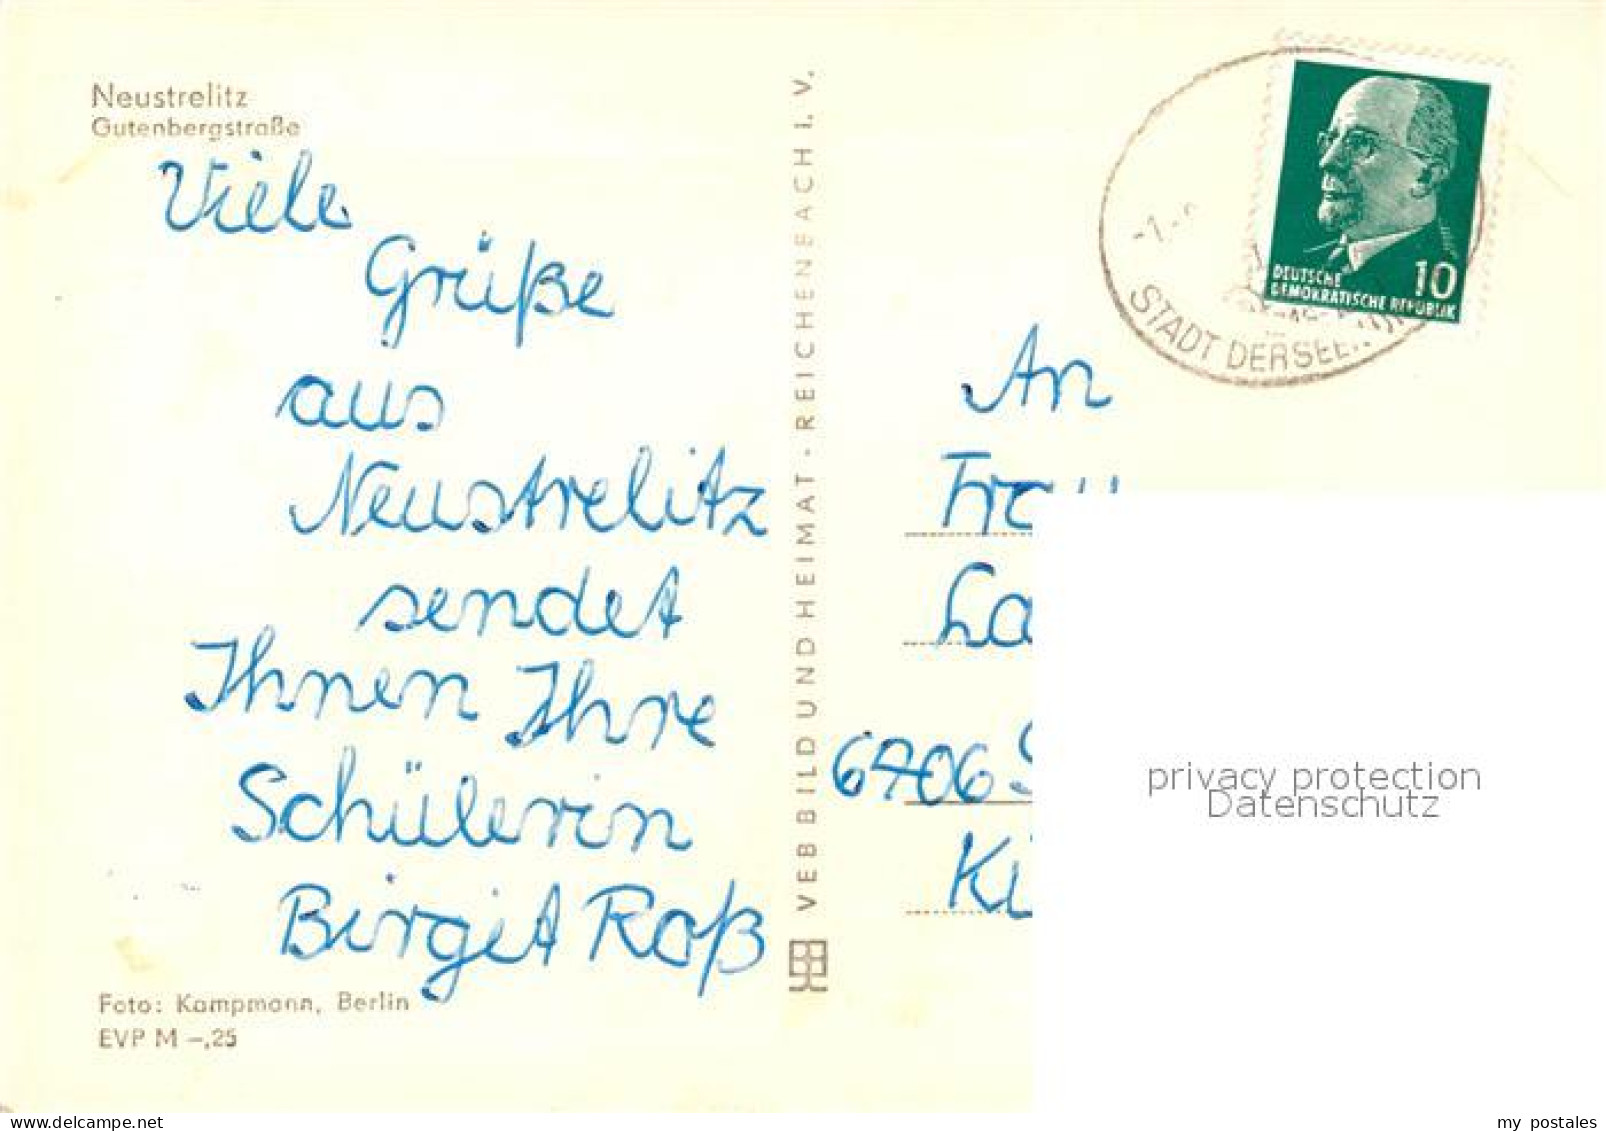 Neustrelitz
Gutenbergstraße
Viele
Grüße
aus
Neustrelitz
sendet
Ihnen Ihre
Schülerin
Birgit Roß
Foto: Kampmann, Berlin
EVP M –,25
VEB BILD UND HEIMAT · REICHENBACH I. V.
DEUTSCHE
DEMOKRATISCHE REPUBLIK
10
STADT DER
An
6406
privacy protection
Datenschutz
www.delcampe.net
my postales